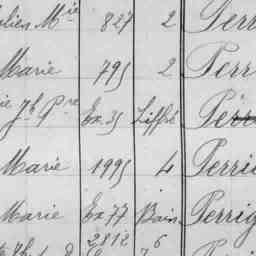 Mie 827 2 Perr
Marie 795 2 Perr
Jh Pre Ex. 35 Liffré Pér
Marie 1995 4 Perri
Marie Ex 77 Bain Perrig
2812 6